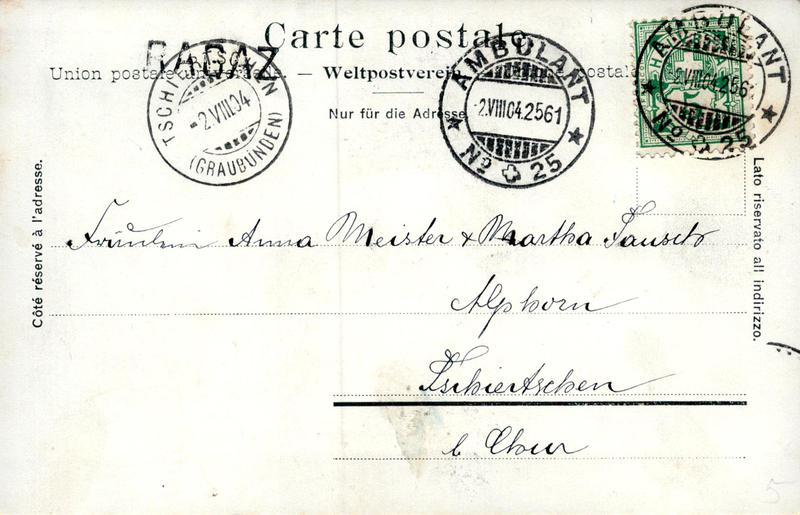 Carte postale
RAGAZ
Union postale — Weltpostverein — postale
Nur für die Adresse
TSCHIERTSCHEN
-2.VIII.04
(GRAUBÜNDEN)
AMBULANT
-2.VIII.04.2561
No 25
AMBULANT
-2.VIII.04.2561
No 25
Côté réservé à l'adresse.
Lato riservato all indirizzo.
Fräulein Anna Meister & Martha
Alphorn
Tschiertschen
b. Chur
5